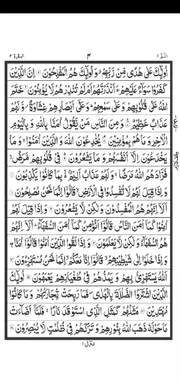 الٓمّٓ ١ ٣ البقرة ٢
اُولٰٓئِكَ عَلٰى هُدًى مِّنْ رَّبِّهِمْ وَاُولٰٓئِكَ هُمُ الْمُفْلِحُوْنَ اِنَّ الَّذِيْنَ
كَفَرُوْا سَوَآءٌ عَلَيْهِمْ ءَاَنْذَرْتَهُمْ اَمْ لَمْ تُنْذِرْهُمْ لَا يُؤْمِنُوْنَ خَتَمَ
اللّٰهُ عَلٰى قُلُوْبِهِمْ وَعَلٰى سَمْعِهِمْ وَعَلٰٓى اَبْصَارِهِمْ غِشَاوَةٌ وَّلَهُمْ
عَذَابٌ عَظِيْمٌ وَمِنَ النَّاسِ مَنْ يَّقُوْلُ اٰمَنَّا بِاللّٰهِ وَبِالْيَوْمِ
الْاٰخِرِ وَمَا هُمْ بِمُؤْمِنِيْنَ يُخٰدِعُوْنَ اللّٰهَ وَالَّذِيْنَ اٰمَنُوْا وَمَا
يَخْدَعُوْنَ اِلَّآ اَنْفُسَهُمْ وَمَا يَشْعُرُوْنَ فِيْ قُلُوْبِهِمْ مَّرَضٌ
فَزَادَهُمُ اللّٰهُ مَرَضًا وَلَهُمْ عَذَابٌ اَلِيْمٌ بِمَا كَانُوْا يَكْذِبُوْنَ
وَاِذَا قِيْلَ لَهُمْ لَا تُفْسِدُوْا فِى الْاَرْضِ قَالُوْٓا اِنَّمَا نَحْنُ مُصْلِحُوْنَ
اَلَآ اِنَّهُمْ هُمُ الْمُفْسِدُوْنَ وَلٰكِنْ لَّا يَشْعُرُوْنَ وَاِذَا قِيْلَ لَهُمْ
اٰمِنُوْا كَمَآ اٰمَنَ النَّاسُ قَالُوْٓا اَنُؤْمِنُ كَمَآ اٰمَنَ السُّفَهَآءُ اَلَآ اِنَّهُمْ
هُمُ السُّفَهَآءُ وَلٰكِنْ لَّا يَعْلَمُوْنَ وَاِذَا لَقُوا الَّذِيْنَ اٰمَنُوْا قَالُوْٓا اٰمَنَّا
وَاِذَا خَلَوْا اِلٰى شَيٰطِيْنِهِمْ قَالُوْٓا اِنَّا مَعَكُمْ اِنَّمَا نَحْنُ مُسْتَهْزِءُوْنَ
اَللّٰهُ يَسْتَهْزِئُ بِهِمْ وَيَمُدُّهُمْ فِيْ طُغْيَانِهِمْ يَعْمَهُوْنَ اُولٰٓئِكَ
الَّذِيْنَ اشْتَرَوُا الضَّلٰلَةَ بِالْهُدٰى فَمَا رَبِحَتْ تِّجَارَتُهُمْ وَمَا كَانُوْا
مُهْتَدِيْنَ مَثَلُهُمْ كَمَثَلِ الَّذِى اسْتَوْقَدَ نَارًا فَلَمَّآ اَضَآءَتْ
مَا حَوْلَهٗ ذَهَبَ اللّٰهُ بِنُوْرِهِمْ وَتَرَكَهُمْ فِيْ ظُلُمٰتٍ لَّا يُبْصِرُوْنَ